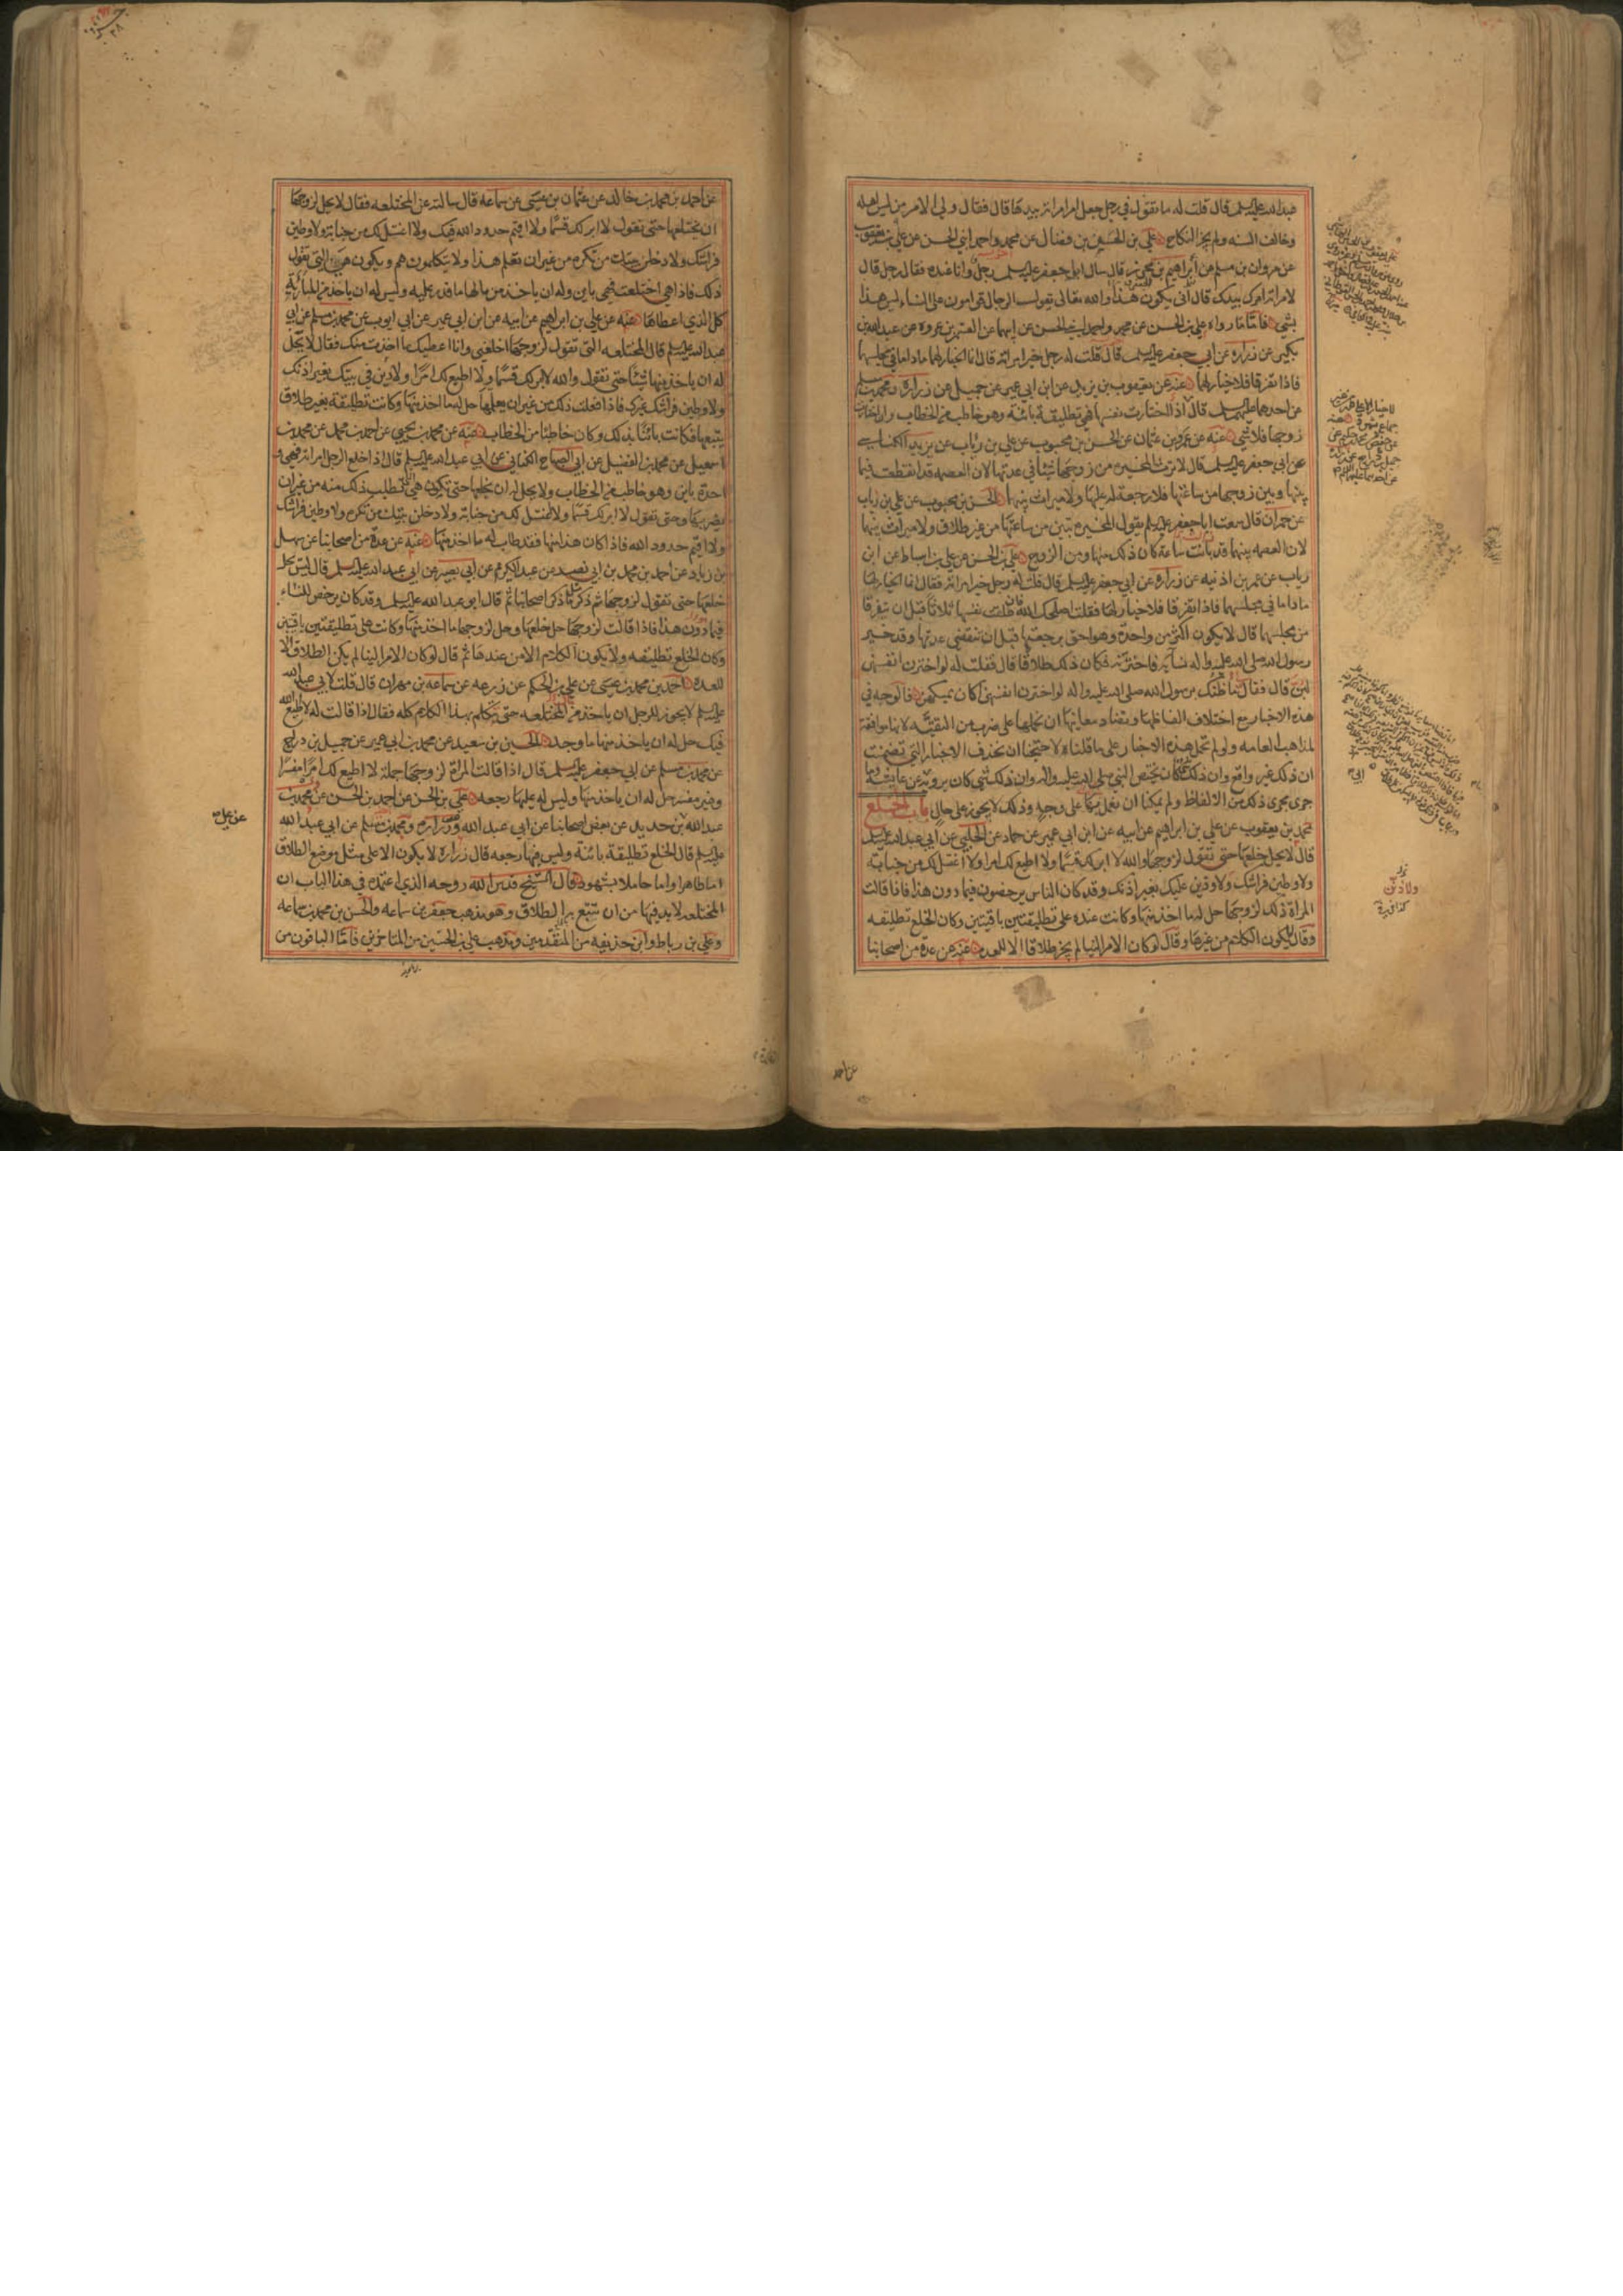 عبدالله عليه السلم قال قلت له ما تقول في رجل جعل امر امراته بيدها قال فقال ولى الامر من ليس اهله
وخالف السنه ولم يجز النكاح علي بن الحسن بن فضال عن محمد واحمد ابني الحسن عن علي بن يعقوب
عن مروان بن مسلم عن ابراهيم بن محرز قال سال ابا جعفر عليه السلم رجل وانا عنده فقال رجل قال
لامراته امرك بيدك قال انى يكون هذا والله تعالى يقول الرجال قوامون على النساء ليس هذا
بشي فاما ما رواه علي بن الحسن عن محمد واحمد ابني الحسن عن ابيهما عن القسم بن عروه عن عبدالله بن
بكير عن زراره عن ابي جعفر عليه السلم قال قلت له رجل خير امراته قال انما الخيار لهما ماداما في مجلسهما
فاذا تفرقا فلا خيار لهما عنه عن يعقوب بن يزيد عن ابن ابي عمير عن جميل عن زراره ومحمد بن مسلم
عن احدهما عليهما السلم قال اذا اختارت نفسها فهي تطليقة بائنة وهو خاطب من الخطاب وان اختارت
زوجها فلا شي عنه عن عمرو بن عثمان عن الحسن بن محبوب عن علي بن رئاب عن يزيد الكناسي
عن ابي جعفر عليه السلم قال لا ترث المخيره من زوجها شيئا في عدتها لان العصمه قد انقطعت فيما
بينها وبين زوجها من ساعتها فلا رجعة له عليها ولا ميراث بينهما الحسن بن محبوب عن علي بن رئاب
عن حمران قال سمعت ابا جعفر عليه السلم يقول المخيره تبين من ساعتها من غير طلاق ولا ميراث بينهما
لان العصمه بينهما قد بانت ساعة كان ذلك منها ومن الزوج علي بن الحسن عن علي بن اسباط عن ابن
رياب عن عمر بن اذنيه عن زراره عن ابي جعفر عليه السلم قال قلت له رجل خير امراته فقال انما الخيار لهما
ماداما في مجلسهما فاذا تفرقا فلا خيار لهما فقلت اصلحك الله فان طلقت نفسها ثلاثا قبل ان يتفرقا
من مجلسهما قال لا يكون اكثر من واحدة وهو احق برجعتها قبل ان تنقضي عدتها وقد خير
رسول الله صلى الله عليه واله نسآئه فاخترنه فكان ذلك طلاقا قال فقلت له لو اخترن انفسهن
لبن قال فقال ما ظنك برسول الله صلى الله عليه واله لو اخترن انفسهن اكان يمسكهن فالوجه في
هذه الاخبار مع اختلاف الفاظها وتضاد معانيها ان نحملها على ضرب من التقيه لانها موافقة
لمذاهب العامه ولو لم نحمل هذه الاخبار على ما قلناه لاحتجنا ان نحذف الاخبار التي تضمنت
ان ذلك غير واقع وان ذلك كان يختص النبي صلى الله عليه واله وان ذلك شي كان يرويه عن عايشه وما
جرى مجرى ذلك من الالفاظ ولم يمكنا ان نعمل بها على وجه وذلك لا يجوز على حال باب الخلع
محمد بن يعقوب عن علي بن ابراهيم عن ابيه عن ابن ابي عمير عن حماد عن الحلبي عن ابي عبدالله عليه السلم
قال لا يحل خلعها حتى تقول لزوجها والله لا ابر لك قسما ولا اطيع لك امرا ولا اغتسل لك من جنابة
ولاوطين فراشك ولاوذين عليك بغير اذنك وقد كان الناس يرخصون فيما دون هذا فاذا قالت
المراة ذلك لزوجها حل له ما اخذ منها وكانت عنده على تطليقتين باقيتين وكان الخلع تطليقه
وقال يكون الكلام من عندها وقال لو كان الامر الينا لم يجز طلاقا الا للعده عنه عن عدة من اصحابنا
عن احمد
عن احمد بن محمد بن خالد عن عثمان بن عيسى عن سماعه قال سالته عن المختلعه فقال لا يحل لزوجها
ان يختلعها حتى تقول لا ابر لك قسما ولا اقيم حدود الله فيك ولا اغتسل لك من جنابة ولاوطين
فراشك ولادخلن بيتك من تكره من غير ان تعلم هذا ولا يتكلمون هم ويكون هي التي تقول
ذلك فاذا هي اختلعت فهي باين وله ان ياخذ من مالها ما قدر عليه وليس له ان ياخذ من المبارئة
كل الذي اعطاها عنه عن علي بن ابراهيم عن ابيه عن ابن ابي عمير عن ابي ايوب عن محمد بن مسلم عن ابي
عبدالله عليه السلم قال المختلعه التي تقول لزوجها اخلعني وانا اعطيك ما اخذت منك فقال لا يحل
له ان ياخذ منها شيئا حتى تقول والله لا ابر لك قسما ولا اطيع لك امرا ولاذنن في بيتك بغير اذنك
ولاوطين فراشك غيرك فاذا فعلت ذلك من غير ان يعلمها حل له ما اخذ منها وكانت تطليقة بغير طلاق
يتبعها فكانت بائنا بذلك وكان خاطبا من الخطاب عنه عن محمد بن يحيى عن احمد بن محمد عن محمد بن
اسمعيل عن محمد بن الفضيل عن ابي الصباح الكناني عن ابي عبدالله عليه السلم قال اذا خلع الرجل امراته فهي و
احدة باين وهو خاطب من الخطاب ولا يحل له ان يخلعها حتى تكون هي التي تطلب ذلك منه من غير ان
يضر بها وحتى تقول لا ابر لك قسما ولا اغتسل لك من جنابة ولادخلن بيتك من تكره ولاوطين فراشك
ولا اقيم حدود الله فاذا كان هذا منها فقد طاب له ما اخذ منها عنه عن عدة من اصحابنا عن سهل
بن زياد عن احمد بن محمد بن ابي نصر عن عبدالكريم عن ابي بصير عن ابي عبدالله عليه السلم قال ليس يحل
خلعها حتى تقول لزوجها ثم ذكر مثل ما ذكر اصحابنا ثم قال ابو عبدالله عليه السلم وقد كان يرخص للنساء
فيما دون هذا فاذا قالت لزوجها حل خلعها وحل لزوجها ما اخذ منها وكانت على تطليقتين باقيتين
وكان الخلع تطليقه ولا يكون الكلام الا من عندها ثم قال لو كان الامر الينا لم يكن الطلاق الا
للعده احمد بن محمد بن عيسى عن علي بن الحكم عن زرعه عن سماعه بن مهران قال قلت لابي عبدالله
عليه السلم لا يجوز للرجل ان ياخذ من المختلعه حتى تتكلم بهذا الكلام كله فقال اذا قالت له لا اطيع الله
فيك حل له ان ياخذ منها ما وجد الحسين بن سعيد عن محمد بن ابي عمير عن جميل بن دراج
عن محمد بن مسلم عن ابي جعفر عليه السلم قال اذا قالت المراة لزوجها جملة لا اطيع لك امرا مفسرا
وغير مفسر حل له ان ياخذ منها وليس له عليها رجعه علي بن الحسن عن احمد بن الحسن عن محمد بن
عبدالله بن حديد عن بعض اصحابنا عن ابي عبدالله وعن زراره ومحمد بن مسلم عن ابي عبدالله
عليه السلم قال الخلع تطليقة بائنة وليس فيها رجعه قال زراره لا يكون الا على مثل موضع الطلاق
اما طاهرا واما حاملا بشهود قال الشيخ قدس الله روحه الذي اعتمده في هذا الباب ان
المختلعه لابد فيها من ان تتبع بالطلاق وهو مذهب جعفر بن سماعه والحسن بن محمد بن سماعه
وعلي بن رباط وابن حذيفه من المتقدمين ومذهب علي بن الحسين من المتاخرين فاما الباقون من